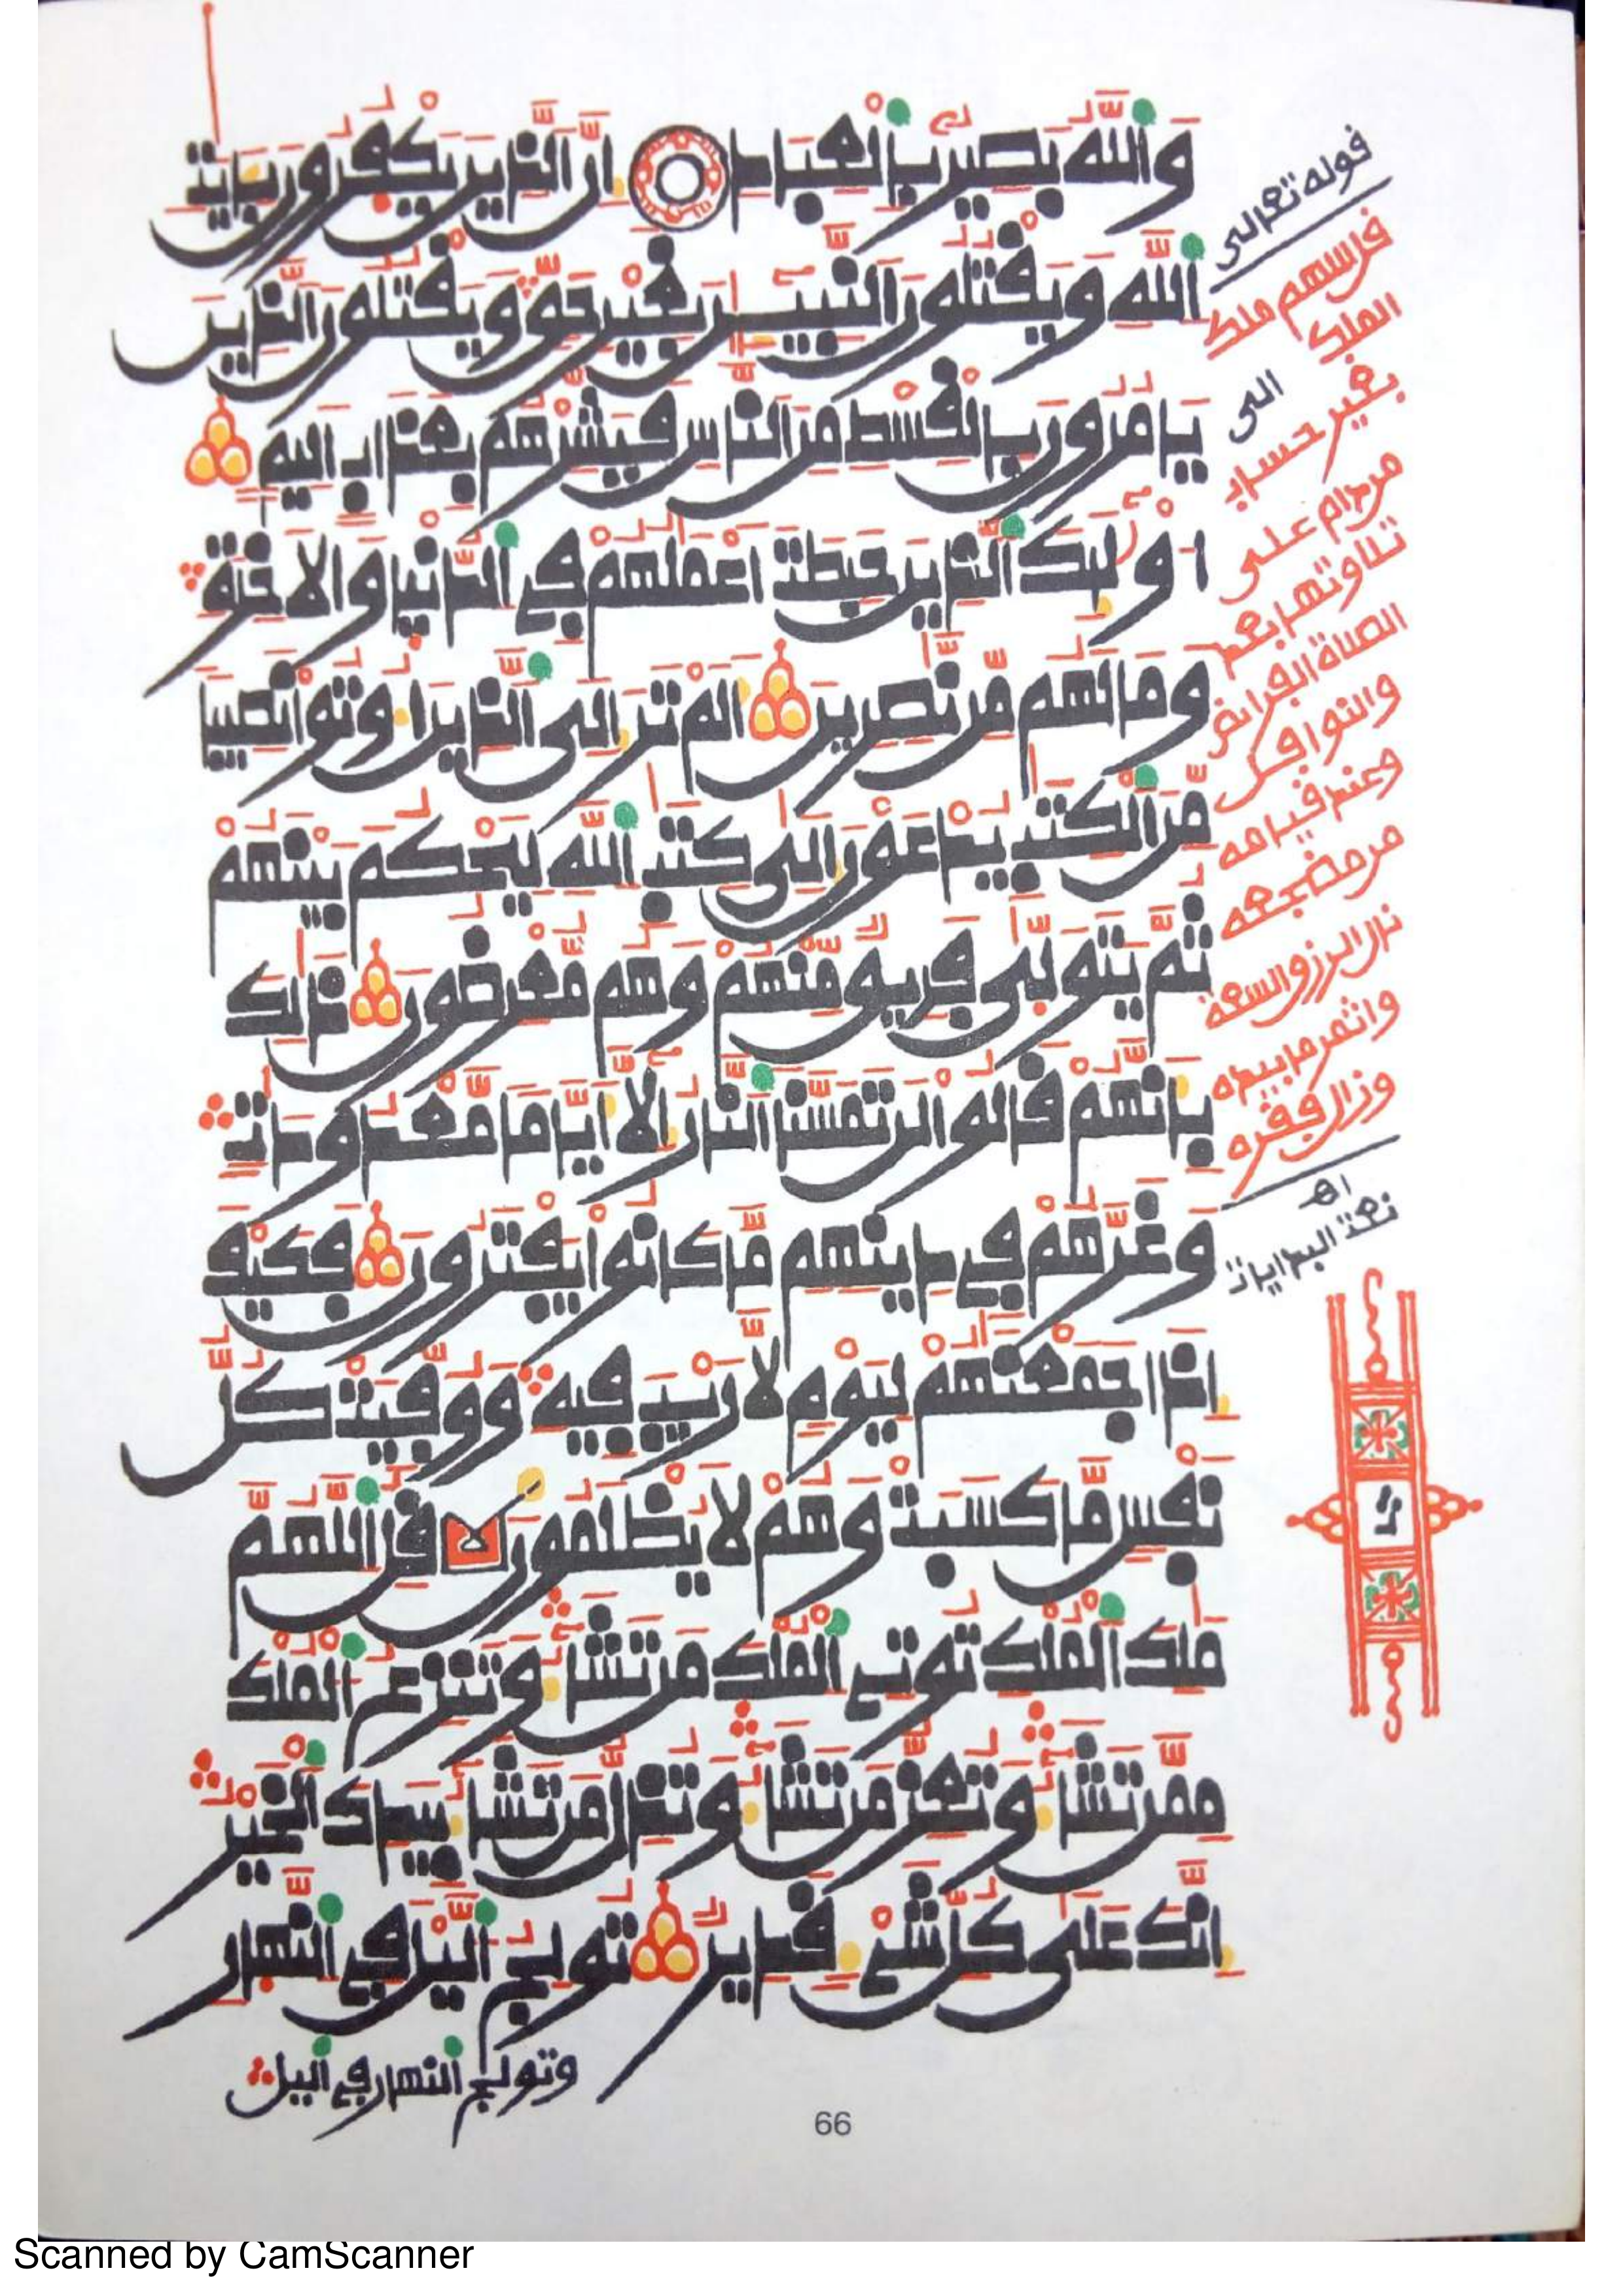 وَاللَّهُ بَصِيرٌ بِالْعِبَادِ إِنَّ الَّذِينَ يَكْفُرُونَ بِـَٔايَٰتِ
اللَّهِ وَيَقْتُلُونَ النَّبِيـِٕينَ بِغَيْرِ حَقٍّ وَيَقْتُلُونَ الَّذِينَ
يَامُرُونَ بِالْقِسْطِ مِنَ النَّاسِ فَبَشِّرْهُم بِعَذَابٍ اَلِيمٍ
أُوْلَٰٓئِكَ الَّذِينَ حَبِطَتَ اَعْمَٰلُهُمْ فِي الدُّنْيَا وَالَاخِرَةِ
وَمَا لَهُم مِّن نَّٰصِرِينَ أَلَمْ تَرَ إِلَى الَّذِينَ أُوتُواْ نَصِيبًا
مِّنَ الْكِتَٰبِ يُدْعَوْنَ إِلَىٰ كِتَٰبِ اللَّهِ لِيَحْكُمَ بَيْنَهُمْ
ثُمَّ يَتَوَلَّىٰ فَرِيقٌ مِّنْهُمْ وَهُم مُّعْرِضُونَ ذَٰلِكَ
بِأَنَّهُمْ قَالُواْ لَن تَمَسَّنَا النَّارُ إِلَّآ أَيَّامًا مَّعْدُودَٰتٍ
وَغَرَّهُمْ فِي دِينِهِم مَّا كَانُواْ يَفْتَرُونَ فَكَيْفَ
إِذَا جَمَعْنَٰهُمْ لِيَوْمٍ لَّا رَيْبَ فِيهِ وَوُفِّيَتْ كُلُّ
نَفْسٍ مَّا كَسَبَتْ وَهُمْ لَا يُظْلَمُونَ قُلِ اللَّهُمَّ
مَٰلِكَ الْمُلْكِ تُوتِي الْمُلْكَ مَن تَشَآءُ وَتَنزِعُ الْمُلْكَ
مِمَّن تَشَآءُ وَتُعِزُّ مَن تَشَآءُ وَتُذِلُّ مَن تَشَآءُ بِيَدِكَ الْخَيْرُ
إِنَّكَ عَلَىٰ كُلِّ شَيْءٍ قَدِيرٌ تُولِجُ الَّيْلَ فِي النَّهَارِ
وتولج النهار في اليل
66
قوله تعالى
قل اللهم ملك
الملك
الى
بغير حساب
من دام على
تلاوتها بعد
الصلاة الفرائض
والنوافل
وعند قيامه
من مضجعه
نال الرزق والسعة
واثمر ما بيده
وزال فقره
اهـ
نعت البدايات
Scanned by CamScanner